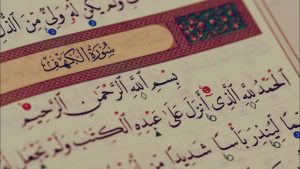 سُورَةُ الْكَهْفِ
بِسْمِ اللَّهِ الرَّحْمَٰنِ الرَّحِيمِ
الْحَمْدُ لِلَّهِ الَّذِي أَنْزَلَ عَلَىٰ عَبْدِهِ الْكِتَٰبَ وَلَمْ يَجْعَلْ
لِيُنْذِرَ بَأْسًا شَدِيدًا مِنْ